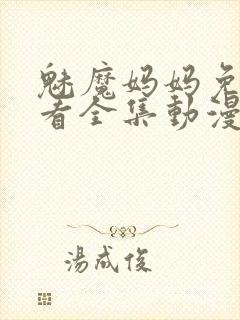 魅魔妈妈免
看全集動漫
湯成俊